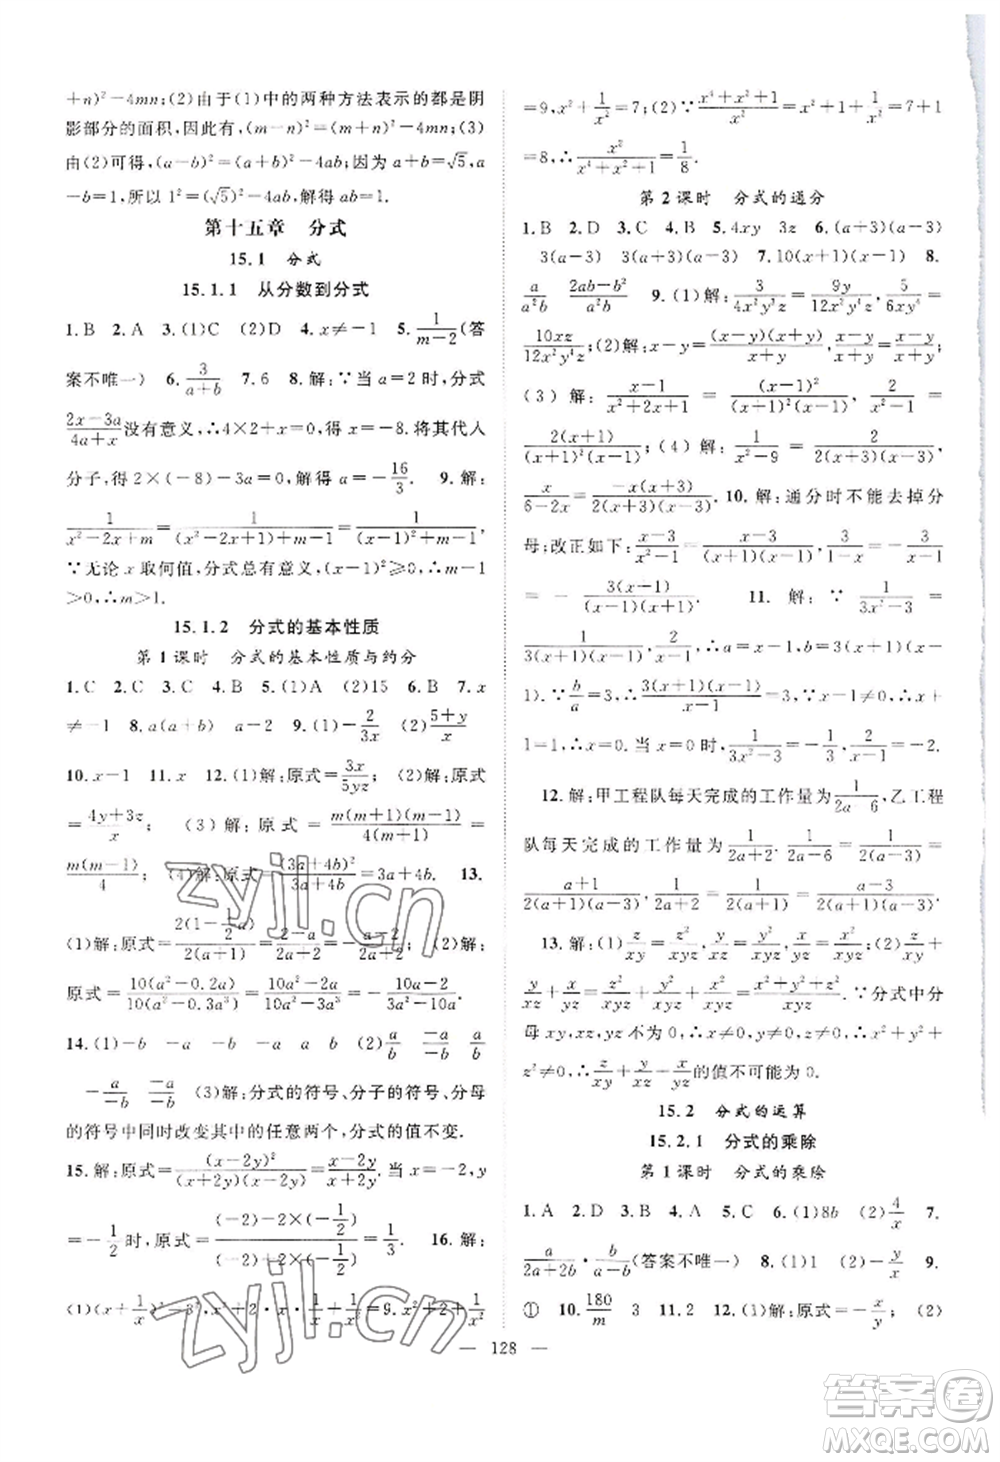 +n)²-4mn;(2)由于(1)中的两种方法表示的都是阴
影部分的面积,因此有,(m-n)²=(m+n)²-4mn;(3)
由(2)可得,(a-b)²=(a+b)²-4ab;因为a+b=√5,a
-b=1,所以1²=(√5)²-4ab,解得ab=1.
第十五章 分式
15.1 分式
15.1.1 从分数到分式
1.B 2.A 3.(1)C (2)D 4.x≠-1 5.1/(m-2)(答
案不唯一) 6.3/(a+b) 7.6 8.解:∵当a=2时,分式
(2x-3a)/(4a+x)没有意义,∴4×2+x=0,得x=-8.将其代入
分子,得2×(-8)-3a=0,解得a=-16/3. 9.解:
1/(x²-2x+m)=1/((x²-2x+1)+m-1)=1/((x-1)²+m-1),
∵无论x取何值,分式总有意义,(x-1)²≥0,∴m-1
>0,∴m>1.
15.1.2 分式的基本性质
第1课时 分式的基本性质与约分
1.C 2.C 3.D 4.A 5.(1)A (2)15 6.B 7.x
≠-1 8.a(a+b) a-2 9.(1)-2/(3x) (2)(5+y)/x
10.x-1 11.x 12.(1)解:原式=3x/(5yz) (2)解:原式
=(4y+3z)/x; (3)解:原式=m(m+1)(m-1)/(4(m+1))=
m(m-1)/4;(4)解:原式=(3a+4b)²/(3a+4b)=3a+4b. 13.
(1)解:原式=2(1-1/2a)/=(2-a)/=-(a-2)/ (2)解:
原式=10(a²-0.2a)/(10(a²-0.3a³))=(10a²-2a)/(10a²-3a³)=-(10a-2)/(3a²-10a).
14.(1)-b -a -a a (2)a/b (-a)/(-b)
-a/(-b) -(-a)/b (3)解:分式的符号,分子的符号,分母
的符号中同时改变其中的任意两个,分式的值不变.
15.解:原式=(x-2y)²/((x+2y)(x-2y))=(x-2y)/(x+2y).当x=-2,y
=-1/2时,原式=((-2)-2×(-1/2))/((-2)+2×(-1/2))=1/3. 16.解:
(1)(x+1/x)²=3²,x²+2·x·1/x+1/x²=9.x²+2+1/x²
=9,x²+1/x²=7;(2)∵(x⁴+x²+1)/x²=x²+1+1/x²=7+1
=8,∴x²/(x⁴+x²+1)=1/8.
第2课时 分式的通分
1.B 2.D 3.C 4.B 5.4xy 3z 6.(a+3)(a-3)
3(a-3) (a+3)(a-3) 7.10(x+1)(x-1) 8.
a/(a²b) (2ab-b²)/(a²b) 9.(1)解:3/(4x²y³z)=9y/(12x²y⁴z),5/(6xy⁴)=
10xz/(12x²y⁴z);(2)解:x-y=(x-y)(x+y)/(x+y)
(3)解:(x-1)/(x²+2x+1)=(x-1)²/((x+1)²(x-1)),2/(x²-1)
=2(x+1)/((x+1)²(x-1));(4)解:1/(x²-9)=2/(2(x+3)(x-3)),
x/(6-2x)=-x(x+3)/(2(x+3)(x-3)). 10.解:通分时不能去掉分
母;改正如下:(x-3)/(x²-1)=(x-3)/((x+1)(x-1)),3/(1-x)
=-3(x+1)/((x+1)(x-1)). 11.解:1/(3x²-3)=
1/(3(x+1)(x-1)),∴a=x-1,b=3(x+1)(x-
1).∵b/a=3(x+1)(x-1)/(x-1)=3(x+1)=3,∴x+
1=1,∴x=0.当x=0时,1/(3x²-3)=-1/3,2/(x-1)=-2.
12.解:甲工程队每天完成的工作量为1/(2a-6),乙工程
队每天完成的工作量为1/(2a+2).通分:1/(2a-6)=
(a+1)/(2(a+1)(a-3)),1/(2a+2)=(a-3)/(2(a+1)(a-3)).
13.解:(1)z/(xy)=z²/(xyz),y/(xz)=y²/(xyz),x/(yz)=x²/(xyz);(2)z/(xy)+
y/(xz)+x/(yz)=z²/(xyz)+y²/(xyz)+x²/(xyz)=(x²+y²+z²)/(xyz).∵分式中分
母xy,xz,yz不为0,∴x≠0,y≠0,z≠0,∴x²+y²+
z²≠0,∴z/(xy)+y/(xz)+x/(yz)的值不可能为0.
15.2 分式的运算
15.2.1 分式的乘除
第1课时 分式的乘除
1.A 2.D 3.B 4.A 5.A 6.(1)8b (2)4/x 7.
a/(2a+2b)·b/(a-b)(答案不唯一) 8.(1)1 (2)-y/x 9.
① 10.180/m 3 11.2 12.(1)解:原式=-x/y;(2)
— 128 —
zyjl.cn
答案圈
MXQE.COM